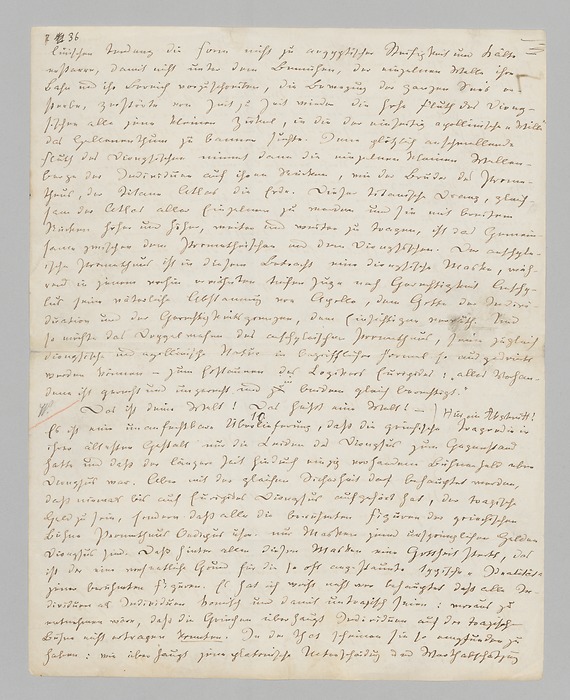 linischen Tendenz die Form nicht zu aegyptischer Steifigkeit und Kälte
erstarre, damit nicht unter dem Bemühen, der einzelnen Welle ihre
Bahn und ihr Bereich vorzuschreiben, die Bewegung des ganzen See's er-
sterbe, zerstörte von Zeit zu Zeit wieder die hohe Fluth des Diony-
sischen alle jene kleinen Zirkel, in die der einseitig apollinische „Wille“
das Hellenenthum zu bannen suchte. Jene plötzlich anschwellende
Fluth des Dionysischen nimmt dann die einzelnen kleinen Wellen-
berge der Individuen auf ihren Rücken, wie der Bruder des Prome-
theus, der Titane Atlas die Erde. Dieser titanische Drang, gleich-
sam der Atlas aller Einzelnen zu werden und sie mit breitem
Rücken höher und höher, weiter und weiter zu tragen, ist das Gemein-
same zwischen dem Prometheischen und dem Dionysischen. Der aeschyle-
ische Prometheus ist in diesem Betracht eine dionysische Maske, wäh-
rend in jenem vorhin erwähnten tiefen Zuge nach Gerechtigkeit Aeschy-
lus seine väterliche Abstammung von Apollo, dem Gotte der Indivi-
duation und der Gerechtigkeitsgrenzen, dem Einsichtigen verräth. Und
so möchte das Doppelwesen des aeschyleischen Prometheus, seine zugleich
dionysische und apollinische Natur in begrifflicher Formel so ausgedrückt
werden können — zum Erstaunen des Logikers Euripides: „alles Vorhan-
dene ist gerecht und ungerecht und in beidem gleich berechtigt.“
Das ist deine Welt! Das heisst eine Welt! —
10
Es ist eine unanfechtbare Überlieferung, dass die griechische Tragoedie in
ihrer ältesten Gestalt nur die Leiden des Dionysus zum Gegenstand
hatte und dass der längere Zeit hindurch einzig vorhandene Bühnenheld eben
Dionysus war. Aber mit der gleichen Sicherheit darf behauptet werden,
dass niemals bis auf Euripides Dionysus aufgehört hat, der tragische
Held zu sein, sondern dass alle die berühmten Figuren der griechischen
Bühne Prometheus Oedipus usw. nur Masken jenes ursprünglichen Helden
Dionysus sind. Dass hinter allen diesen Masken eine Gottheit steckt, das
ist der eine wesentliche Grund für die so oft angestaunte typische „Idealität“
jener berühmten Figuren. Es hat ich weiss nicht wer behauptet dass alle In-
dividuen als Individuen komisch und damit untragisch seien: woraus zu
entnehmen wäre, dass die Griechen überhaupt Individuen auf der tragischen
Bühne nicht ertragen konnten. In der That scheinen sie so empfunden zu
haben: wie überhaupt jene platonische Unterscheidung und Werthabschätzung